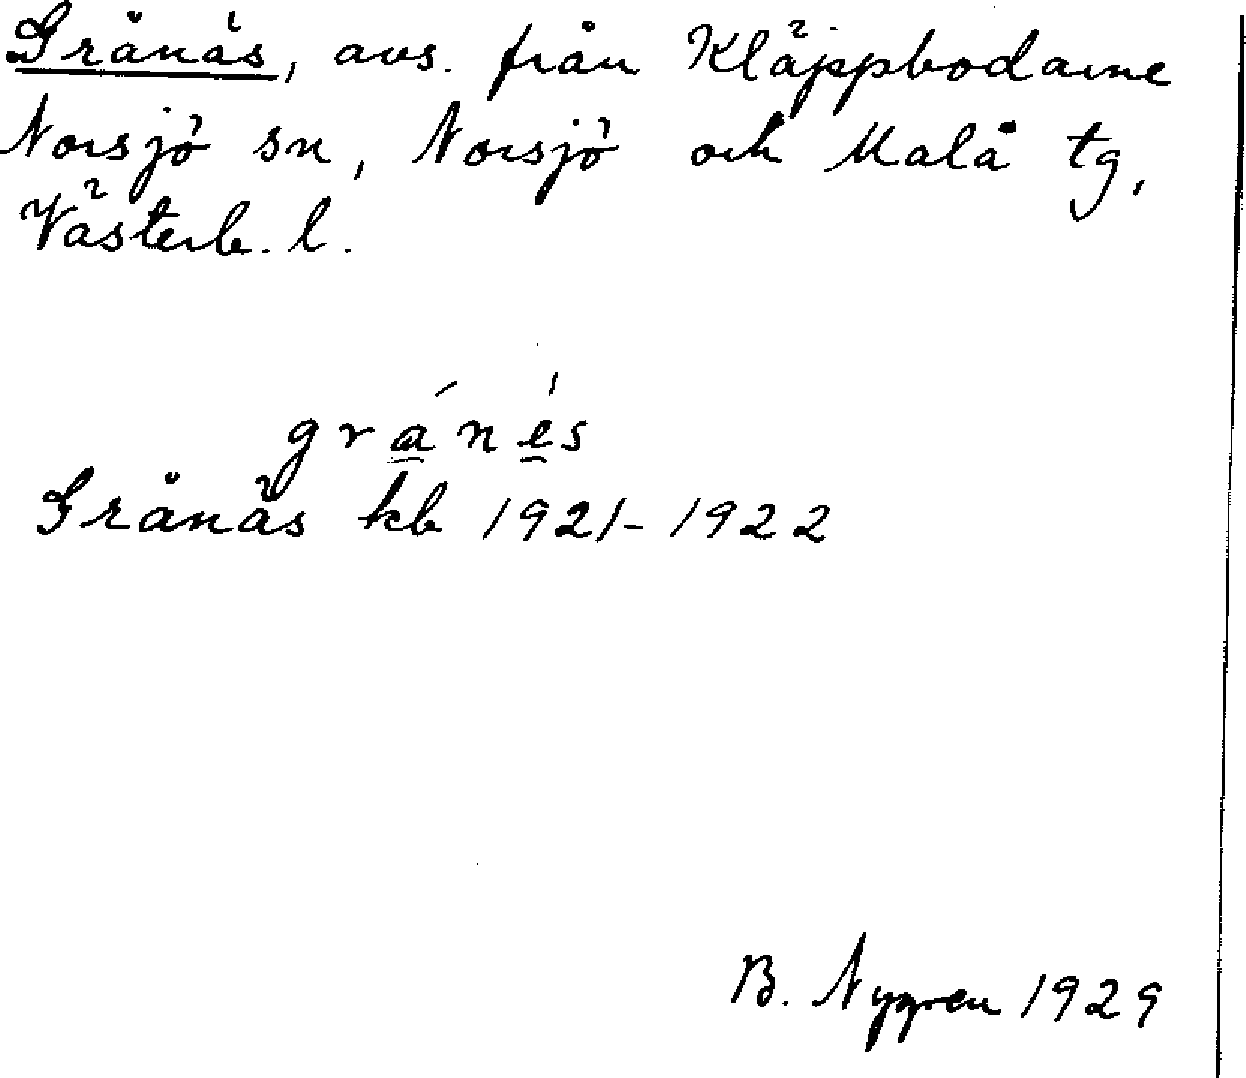 Grånäs, avs. från Kläppbodarne
Norsjö sn, Norsjö och Malå tg,
Västerb. l.
gránés
Grånäs kb 1921-1922
B. Nygren 1929